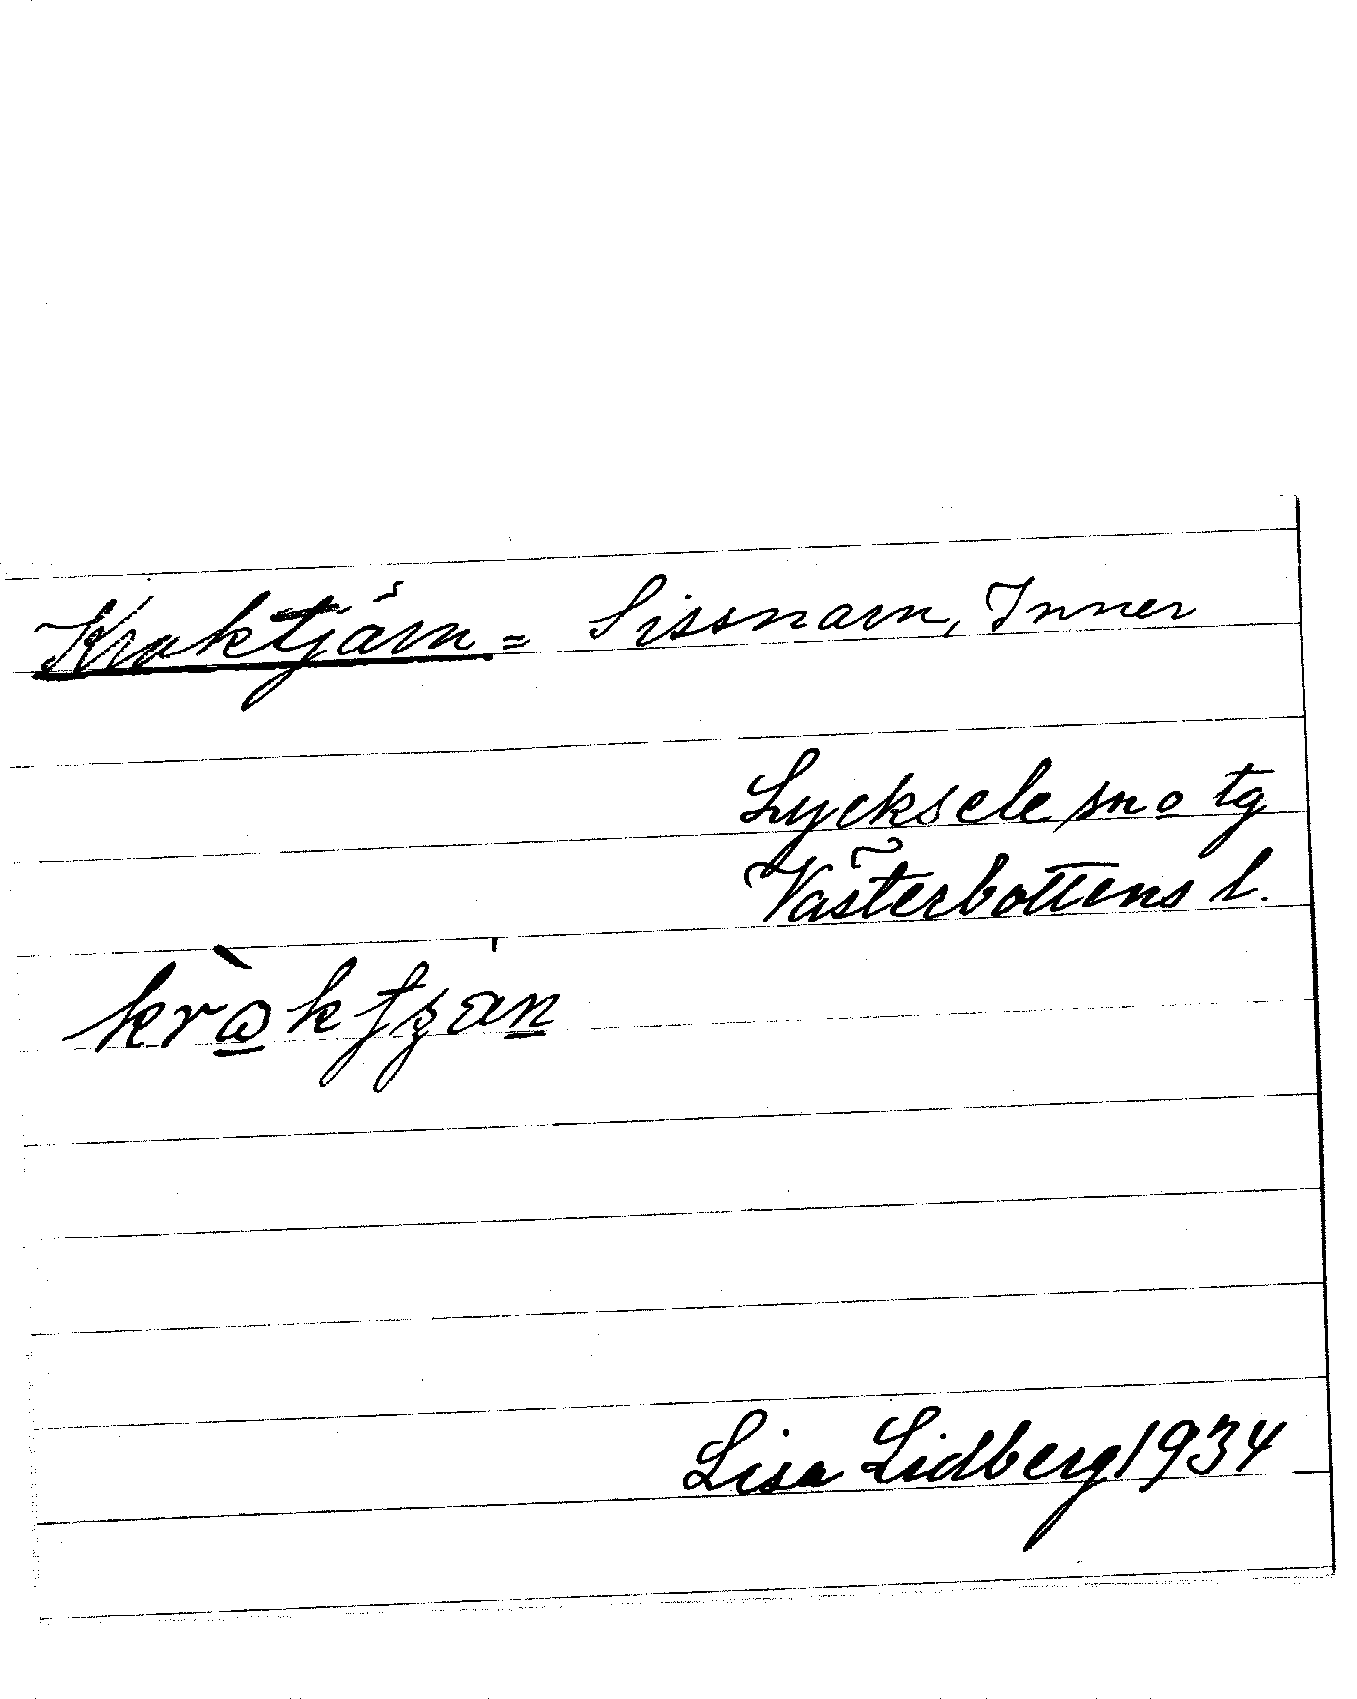 Kroktjärn = Sissnarn, Inner
Lycksele sn o tg
Västerbottens l.
Lisa Lidberg 1934